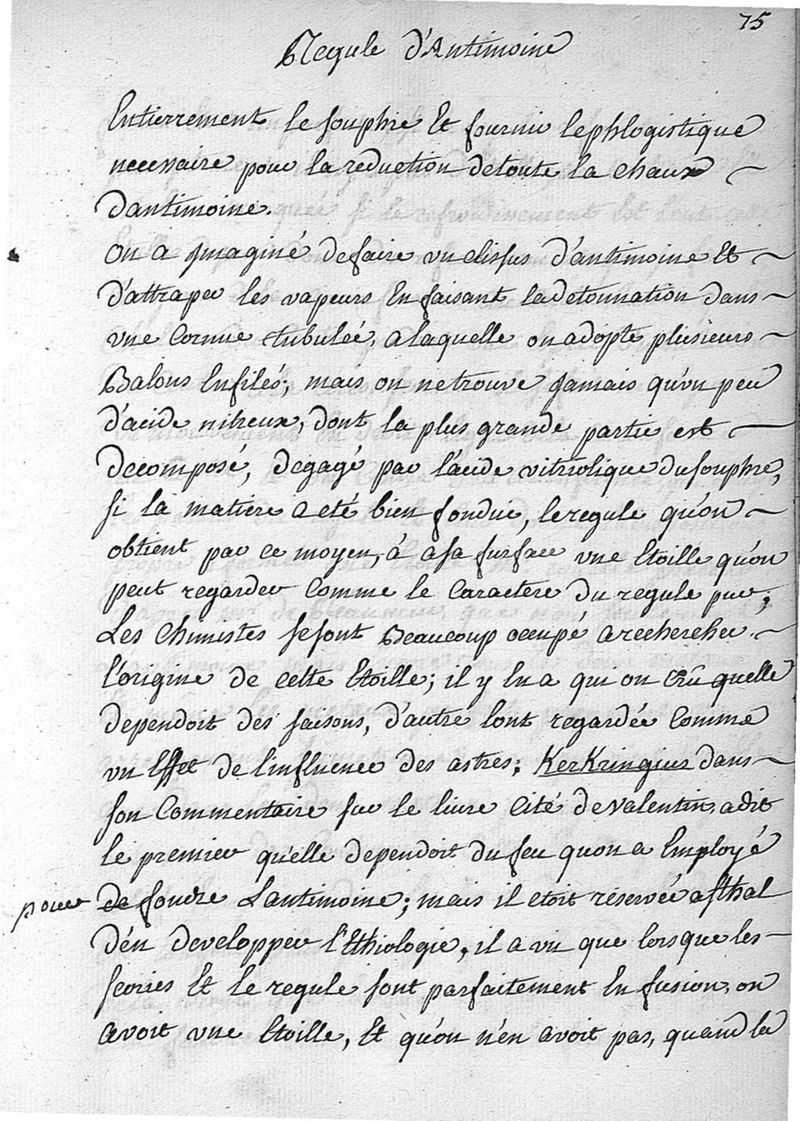 75
Regule d'Antimoine
Entierrement le souphre Et fournir lephlogistique
necessaire pour la reduction detoute la chaux
Dantimoine.
On a Jmaginé defaire un clissus d'antimoine Et
D'attraper les vapeurs En faisant la detonnation dans
une Cornue tubuleé, a laquelle on adopte plusieurs
Balons Enfilés; mais on ne trouve Jamais qu'un peu
d'acide nitreux, dont la plus grande partie est
Decomposé, degagé par l'acide vitriolique du souphre,
si la matiere a eté bien fondue, le regule qu'on
obtient par ce moyen, à asa surface une Etoille qu'on
peut regarder Comme le Caractere du regule pur;
Les Chimistes se sont Beaucoup occupé a rechercher
l'origine de cette Etoille; il y En a qui on crû quelle
dependoit des saisons, d'autre lont regardée Comme
un Effet de l'influence des astres; KerKringius dans
son Commentaire sur le livre Cité de Valentin, a dit
le premier qu'elle dependoit du feu quon a Employé
pour de fondre Lantimoine; mais il etoit réservée a sthal
D'én developper l'Ethiologie, il a vu que lorsque les
scories Et le regule sont parfaitement En fusion, on
avoit une Etoille, Et qu'on n'en avoit pas, quand la